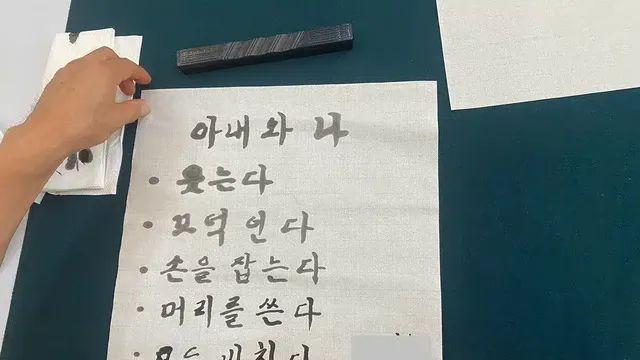 아내와 나
• 웃는다
• 끄덕인다
• 손을 잡는다
• 머리를 쓴다